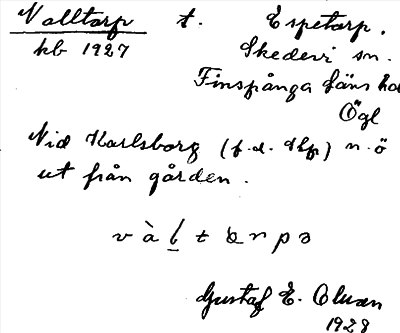 Valltorp t. Espetorp.
kb 1927 Skedevi sn.
Finspånga läns hd
Ögl
Vid Karlsborg (f.d. thp) n.ö
ut från gården.
v à l t ɷ r p ə
Gustaf E. Olman
1928